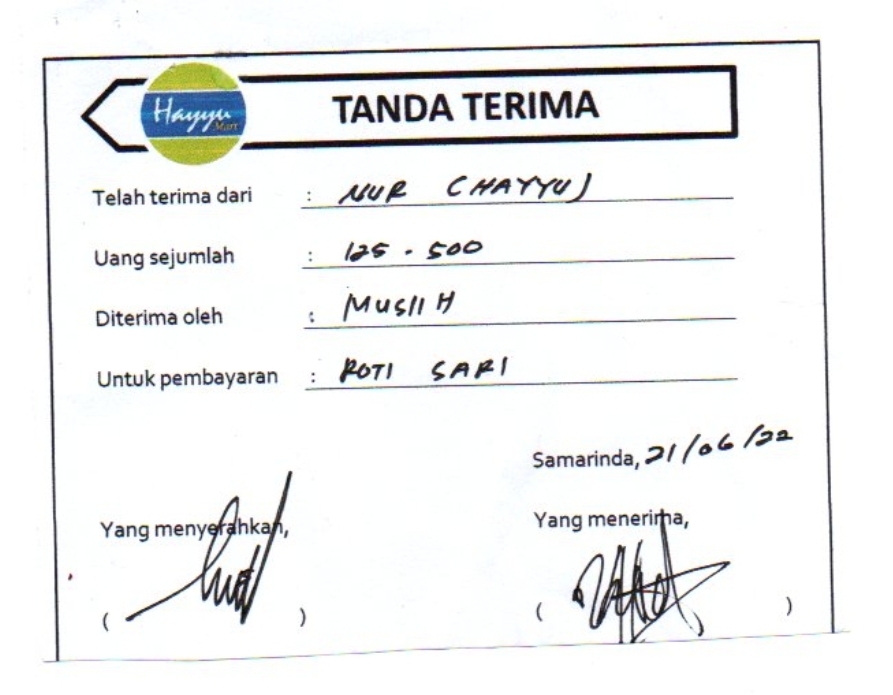 Hayyu
Mart
TANDA TERIMA
Telah terima dari : NUR CHAYYUJ
Uang sejumlah : 125.500
Diterima oleh : MUSlIH
Untuk pembayaran : ROTI SARI
Samarinda, 21/06/22
Yang menyerahkan,
Yang menerima,
( )
( )